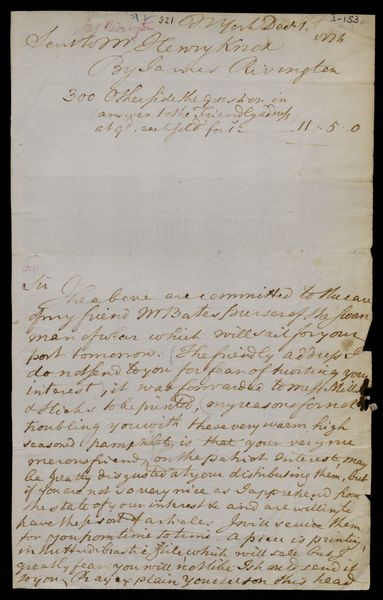 321
1-183
N York Dec 1. 1774
Sent to Mr Henry Knox
By James Rivington
300 Other side the question in
answer to the friendly address
at 9d each
11 . 5 . 0
Sir
The above are committed to the care
of my friend Mr Bates Purser of the Swan
man of war which will sail for your
port tomorrow. The friendly address I
do not send to you for fear of hurting your
interest, it was forwarded to Mess Mills
& Hicks to be printed, my reasons for not
troubling you with these very warm high
seasoned pamphlets, is that your very nu
merous friends, on the patriot Interest, may
be greatly disgusted at your distributing them, but
if you are not so very nice as I apprehend from
the state of your interest & and are willing to
have the sort of articles, I will secure them
for you from time to time. A piece is printing
in the Hudibrastic stile which will sell but I
greatly fear you will not like I shd send it
to you, Pray explain yourself on this head